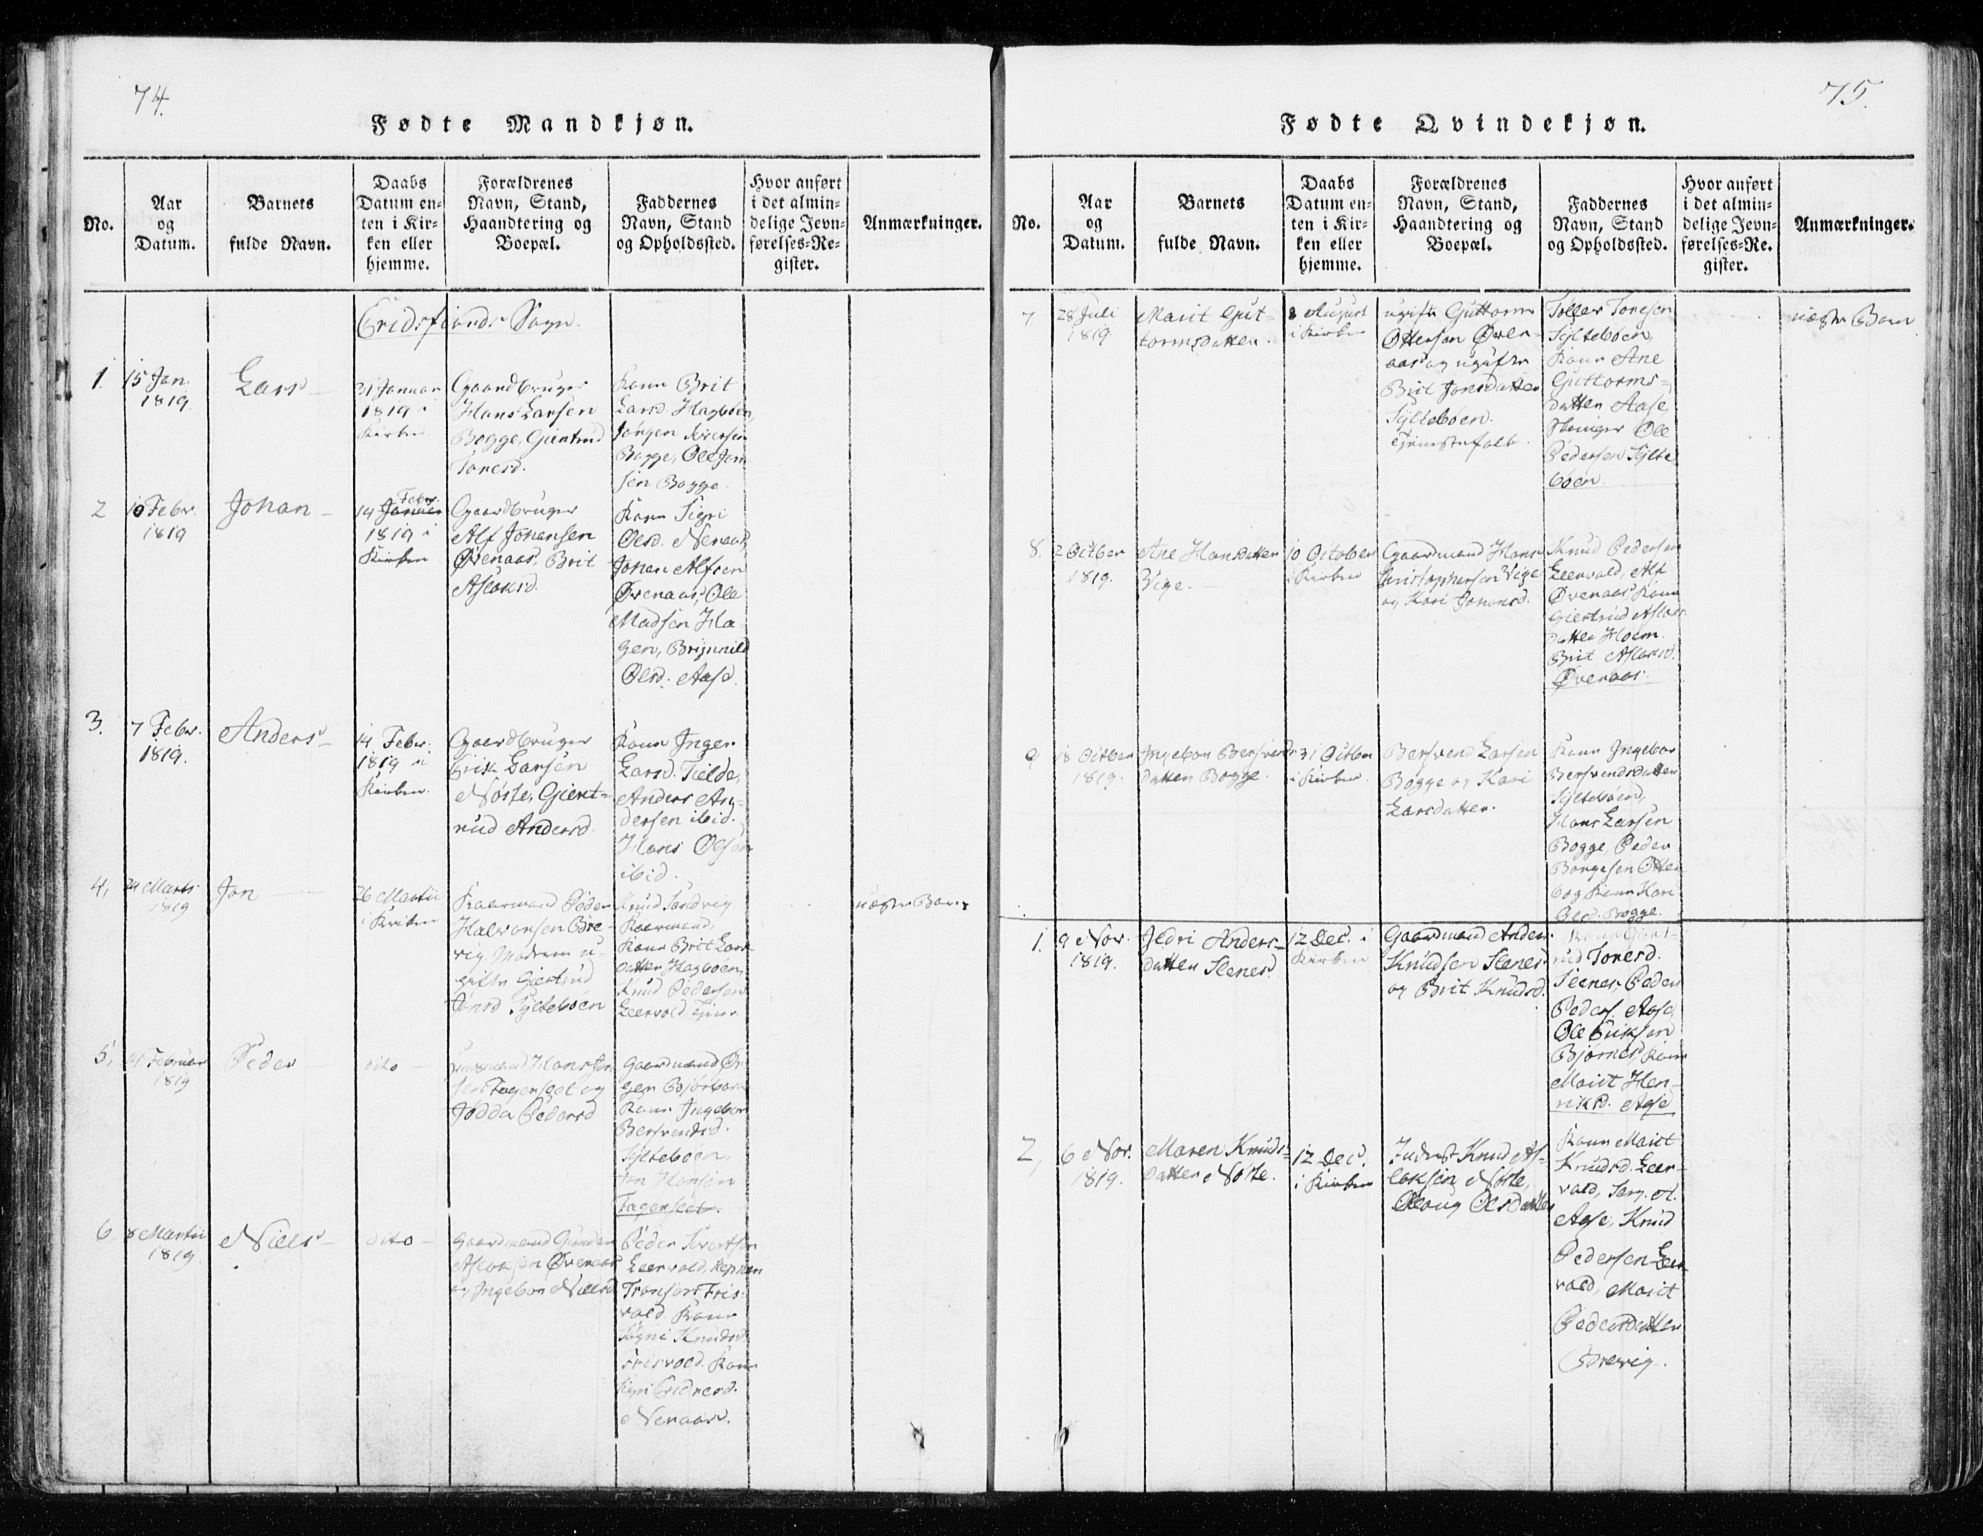 74.
Fødte Mandkjøn.
No.
Aar
og
Datum.
Barnets
fulde Navn.
Daabs
Datum en-
ten i Kir-
ken eller
hjemme.
Forældrenes
Navn, Stand,
Haandtering og
Boepæl.
Faddernes
Navn, Stand
og Opholdssted.
Hvor anført
i det almin-
delige Jevn-
førelses-Re-
gister.
Anmærkninger.
Eridsfiords Sogn.
1.
15 Jan.
1819.
Lars
31 Januar
1819 i
Kirken
Gaardbruger
Hans Larsen
Bogge, Giertrud
Tored.
Kone Brit
Larsd. Hagbøen,
Jørgen Iversen
Bogge, Ole Jon
sen Bogge
2
10 Febr.
1819
Johan
Febr.
14 Januar
1819 i
Kirken
Gaardbruger
Alf Johansen
Øvenaas, Brit
Aslaksd.
Kone Sigri
Olsd. Nenaas,
Johan Alfsen
Øvenaas, Ole
Madsen Ha
gen, Brynnild
Olsd. Aase
3.
7 Febr.
1819.
Anders
14 Febr.
1819 i
Kirken.
Gaardbruger
Erik Larsen
Nøste, Giert-
rud Andersd.
Kone Inger
Larsd. Tielde,
Anders An-
dersen ibid.
Hans Olsen
ibid.
4.
24 Marts
1819
Jon
26 Martii
i Kirken
Peder
Halvorsen Bre-
vig, Modrem u-
gifte Giertrud
Jonsd Sylteboen
Knud Sandvig
Kone Brit Lars
datter Hagboen,
Knud Pedersen
Leervold
uægte Barn
5.
14 Februar
1819
Peder
dito
Hans
sen Fagerslet og
Jødda Pedersd
Gaardmand
gen Bjørboen
Kone Ingebor
Bersvendsd.
Sylteboen,
Jon Hansen
Fagerslet.
6
8 Martii
1819.
Niels
dito
Gaardmand Gunder
Aslaksen Øvenaas
og Ingebor Nielsd
Peder Ivertsen
Leervold,
Fris-
vold Kone
Sigri Knudsd
Frisvold. Kone
Nenaas.
75.
Fødte Qvindekjøn.
No.
Aar
og
Datum.
Barnets
fulde Navn.
Daabs
Datum en-
ten i Kir-
ken eller
hjemme.
Forældrenes
Navn, Stand,
Haandtering og
Boepæl.
Faddernes
Navn, Stand
og Opholdssted.
Hvor anført
i det almin-
delige Jevn-
førelses-Re-
gister.
Anmærkninger.
7
28 Juli
1819
Marit Gut-
tormsdatter.
8 August
i Kirken
ugift Guttorm
Ottersen Øven
aas og ugifte
Brit Jonsdatter
Sylteboen.
Tienestefolk.
Sylteboen,
Kone Ane
Guttorms-
datter Aase,
Ole
Pedersen Sylte
boen
uægte Barn
8.
2 Octber
1819.
Ane Hansdatter
Vige.
10 October
i Kirken
Gaardmand Hans
Christophersen Vige
og Kari Johansd.
Knud Pedersen
Leervold, Alf
Øvenaas Kone
Giertrud Aslaks
datter Hoem.
Brit Aslaksd.
Øvenaas.
9
18 Octber
1819.
Ingebor Bersvends-
datter Bogge.
31 Octber
i Kirken
Bersvend Larsen
Bogge og Kari
Larsdatter.
Kone Ingebor
Bersvendsdatter
Sylteboen,
Hans Larsen
Bogge, Peder
Kone Kari
Olsd. Bogge.
1.
9 Nov.
1819.
Anders-
datter Stenes
12 Dec. i
Kirken
Gaardmand Anders
Knudsen Stenes
og Brit Knudsd.
Kone Giert-
rud Toresd.
Stenes, Peder
Peders. Aase
Ole Eriksen
Bjørnes, Kone
Marit Hen-
riksd. Aase
2,
6 Nov.
1819.
Maren Knuds-
datter Nøste.
12 Dec.
i Kirken
Inderst Knud As-
laksen Nøste,
Olaug Olsdatter
Kone Marit
Knudsd. Leer-
vold,
Aase, Knud
Pedersen Leer-
vold, Marit
Pedersdatter
Brevig.